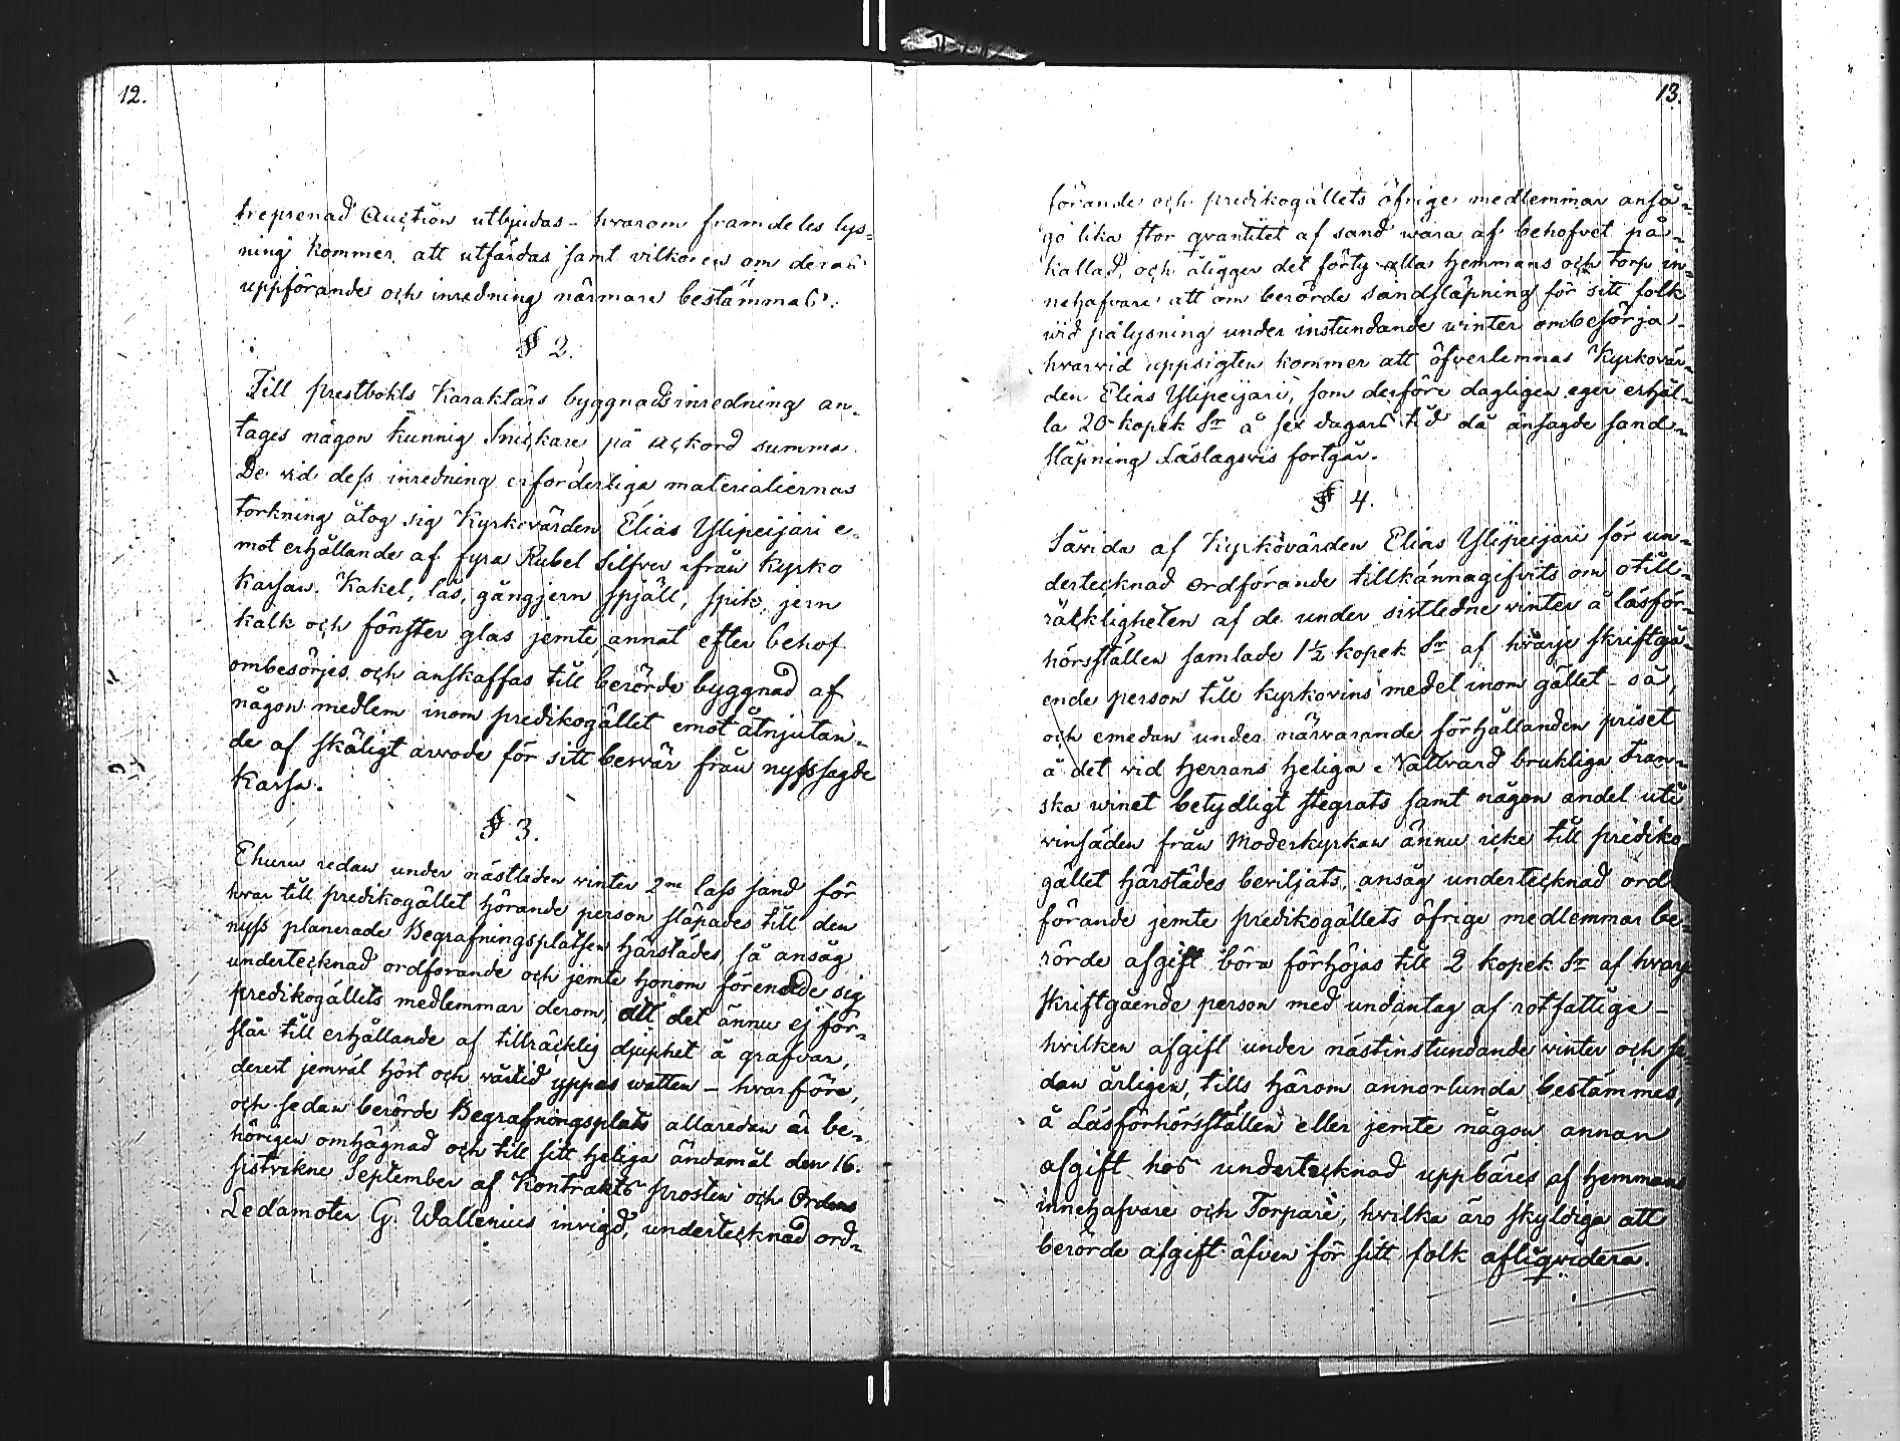 12.
treprenad Auction utbjudas - hvarom framdeles lys=
ning kommer att utfärdas samt vilkoren om deras
uppförande och inredning närmare bestämmas.
§ 2.
Till prestbohls Karaktärs byggnadsinredning an-
tages någon kunnig Snickare på ackord summa.
De vid dess inredning erforderliga materialiernas
torkning åtog sig Kyrkovärden Elias Ylipeijari e-
mot erhållande af fyra Rubel Silfver ifrån Kyrko
Kassan. Kakel, lås, gångjern spjäll, spik, jern
kalk och fönster glas jemte annat efter behof
ombesörjes och anskaffas till berörde byggnad af
någon medlem inom predikogället emot åtnjutan-
de af skäligt arvode för sitt besvär från nysssagde
Kassa.
§ 3.
Ehuru redan under nästleden vinter 2ne lass sand för
hvar till predikogället hörande person släpades till den
nyss planerade Begrafningsplatsen härstädes, så ansåg
undertecknad ordförande och jemte honom förenade sig
predikogällets medlemmar derom, att det ännu ej för-
slår till erhållande af tillräcklig djuphet å grafvar,
derest jemväl höst och vårtid yppas watten - hvarföre,
och sedan berörde Begrafningsplats allaredan är be-
hörigen omhägnad och till sitt heliga ändamål den 16.
sistvekne September af Kontrakts prosten och Ordens
Ledamoten G. Wallenius invigd, undertecknad ord-
13.
förande och predikogällets öfrige medlemmar anså-
go lika stor qvantitet af sand wara af behofvet på-
kallad, och åligger det förty alla Hemmans och Torp in-
nehafvare att om berörde sandsläpning för sitt folk
wid pålysning under instundande winter ombesörja -
hvarvid uppsigten kommer att öfverlemnas Kyrkovär-
den Elias Ylipeijari, som derföre dagligen eger erhål-
la 20 kopek Sr å sex dagars tid då ansagde sand-
släpning Läslagsvis fortgår.
§ 4.
Såvida af Kyrkovärden Elias Ylipeijari för un-
dertecknad ordförande tillkännagifvits om otill-
räckligheten af de under sistledne winter å läsför-
hörsställen samlade 1½ kopek Sr af hvarje skriftgå-
ende person till kyrkovins medel inom gället - så,
och emedan under närvarande förhållanden priset
å det vid Herrans Heliga Nattvard brukliga Fran-
ska winet betydligt stegrats samt någon andel uti
vinsäden från Moderkyrkan ännu icke till prediko
gället härstädes beviljats, ansåg undertecknad ord
förande jemte predikogällets öfrige medlemmar be-
rörde afgift böra förhöjas till 2 kopek Sr af hvarje
skriftgående person med undantag af rotfattige -
hvilken afgift under nästinstundande winter och se
dan årligen, tills härom annorlunda bestämmes,
å Läsförhörsställen eller jemte någon annan
afgift hos undertecknad uppbäres af Hemmans
innehafvare och Torpare, hvilka äro skyldiga att
berörde afgift äfven för sitt folk afliqvidera.